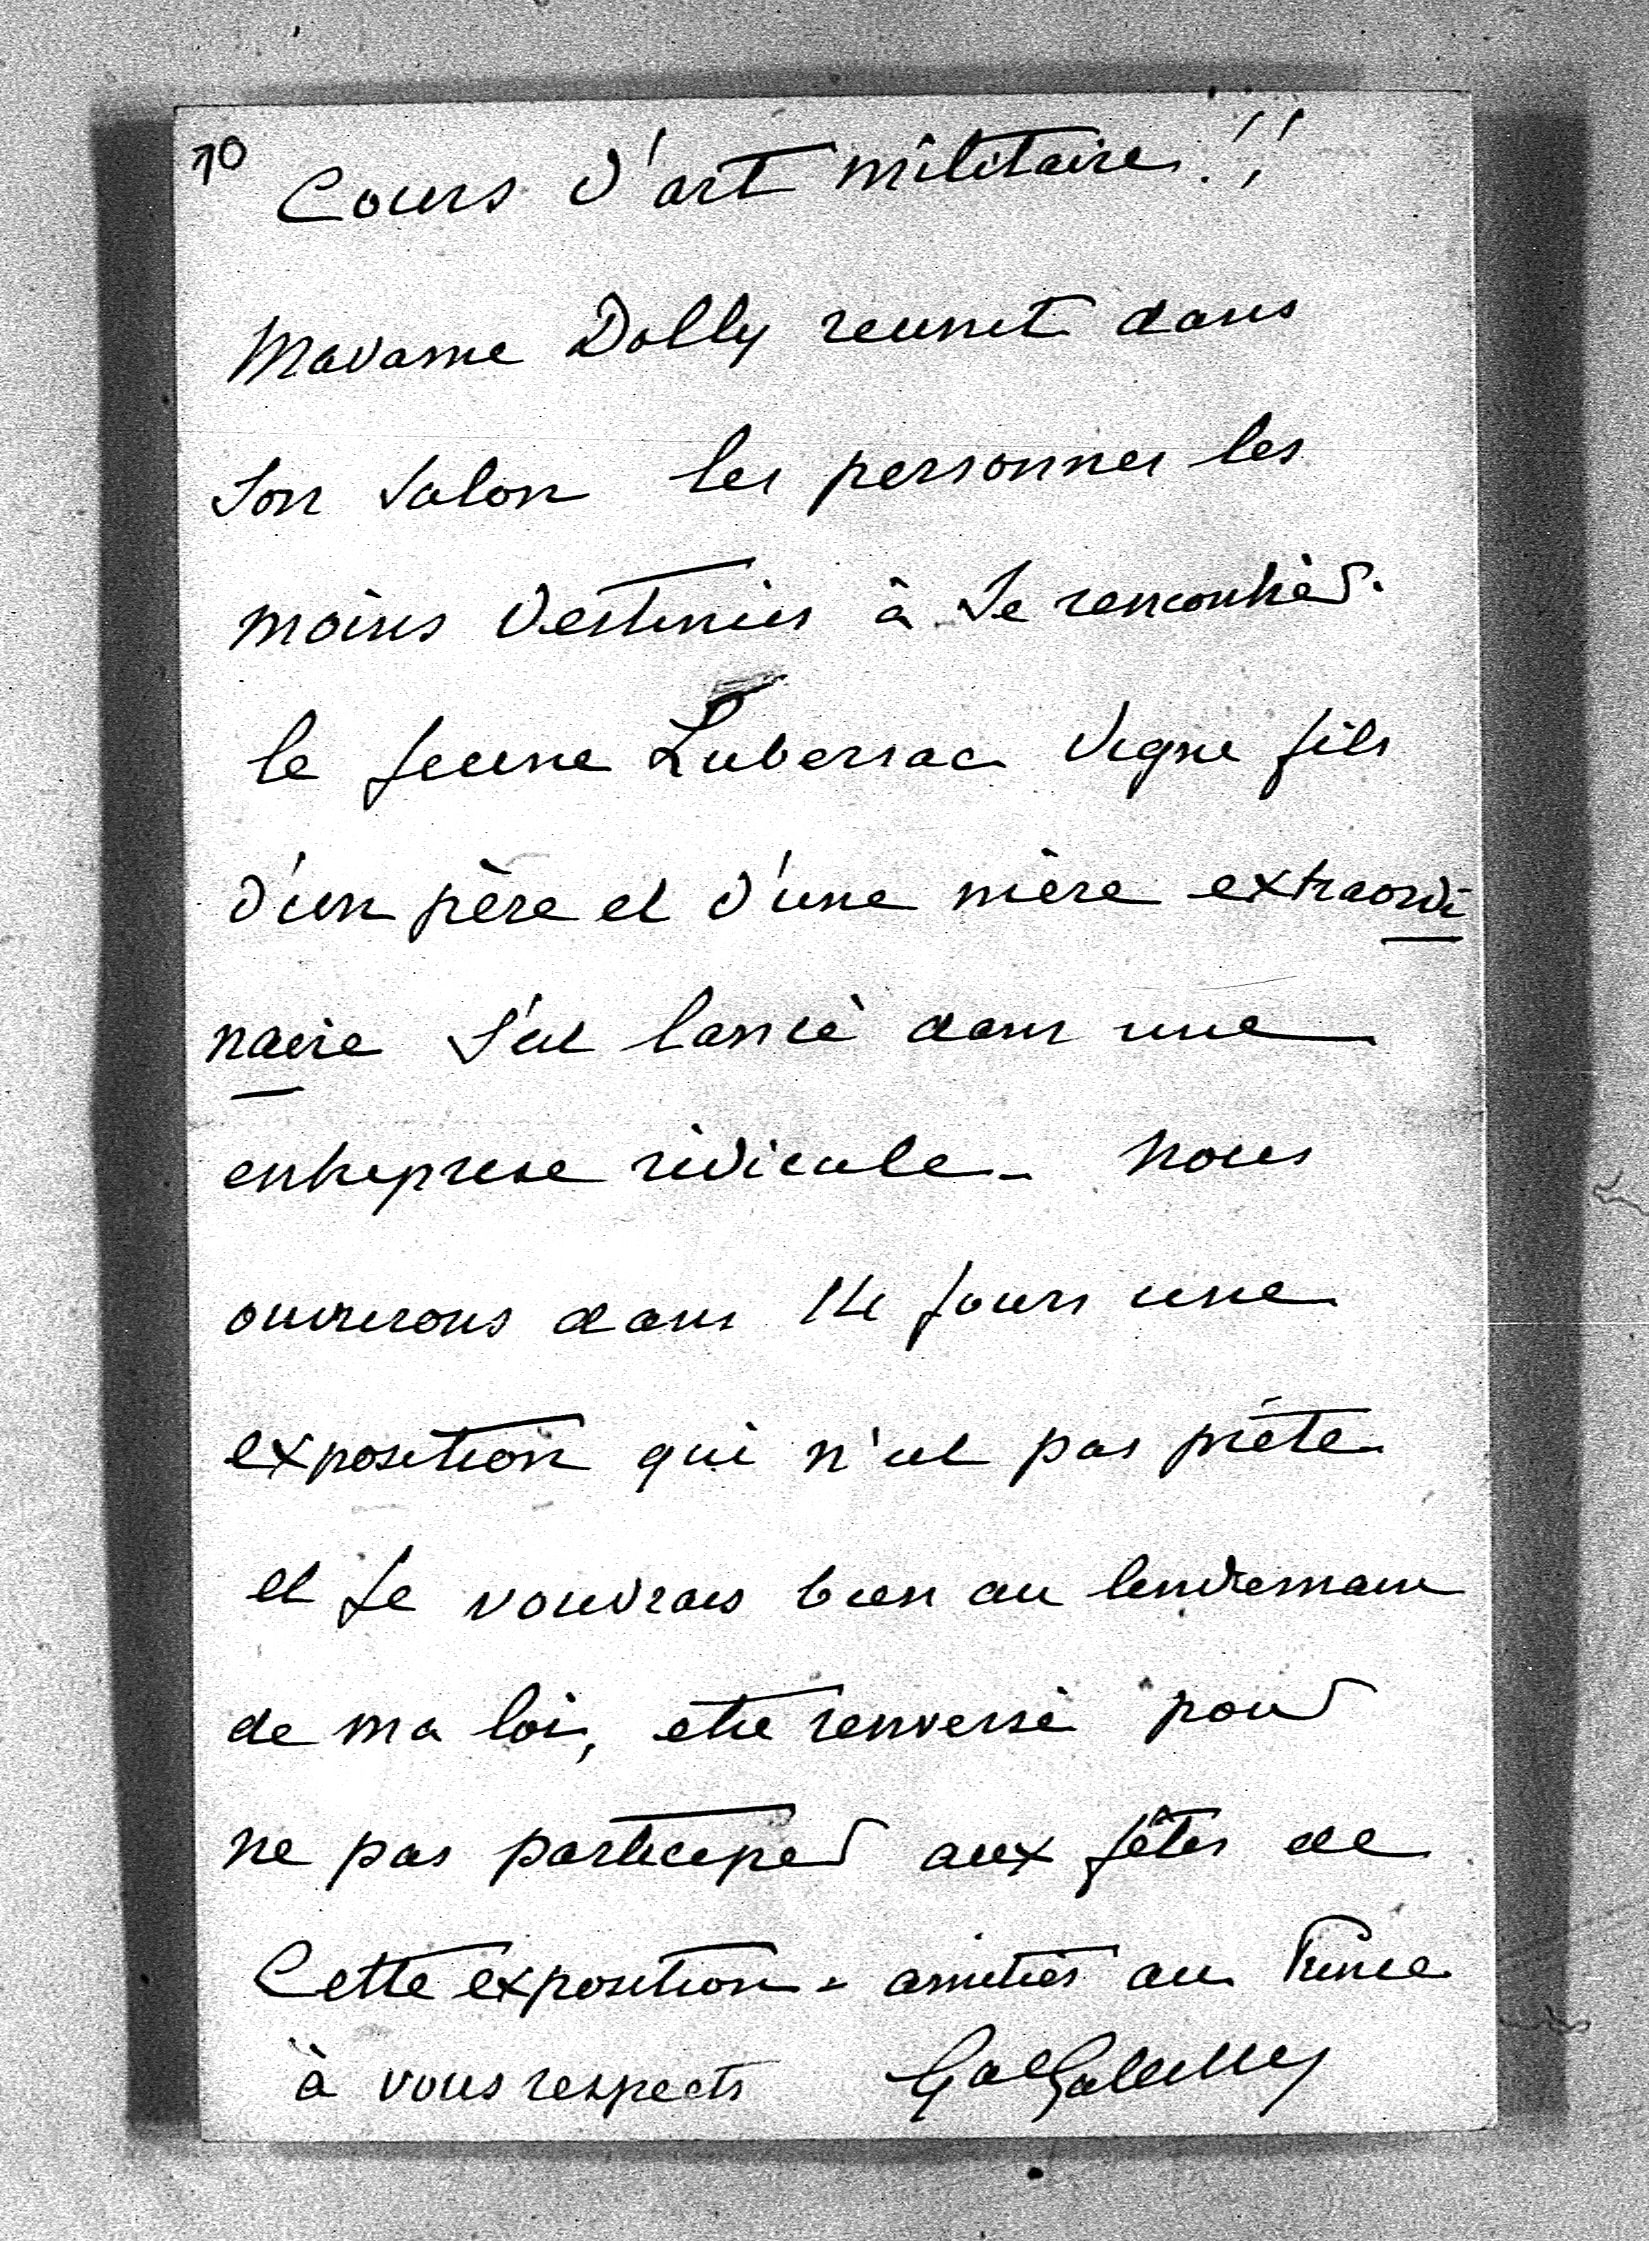 10
Cours d'art militaire!!
Madame Dolly reunit dans
son salon les personnes les
moins destinées à se rencontrer.
le jeune Lubersac digne fils
d'un père et d'une mère extraordi
naire s'est lancé dans une
entreprise ridicule - nous
ouvrirons dans 14 jours une
exposition qui n'est pas prête
et je voudrais bien au lendemain
de ma loi, etre renversé pour
ne pas participer aux fêtes de
Cette exposition - amitiés au Prince
à vous respects